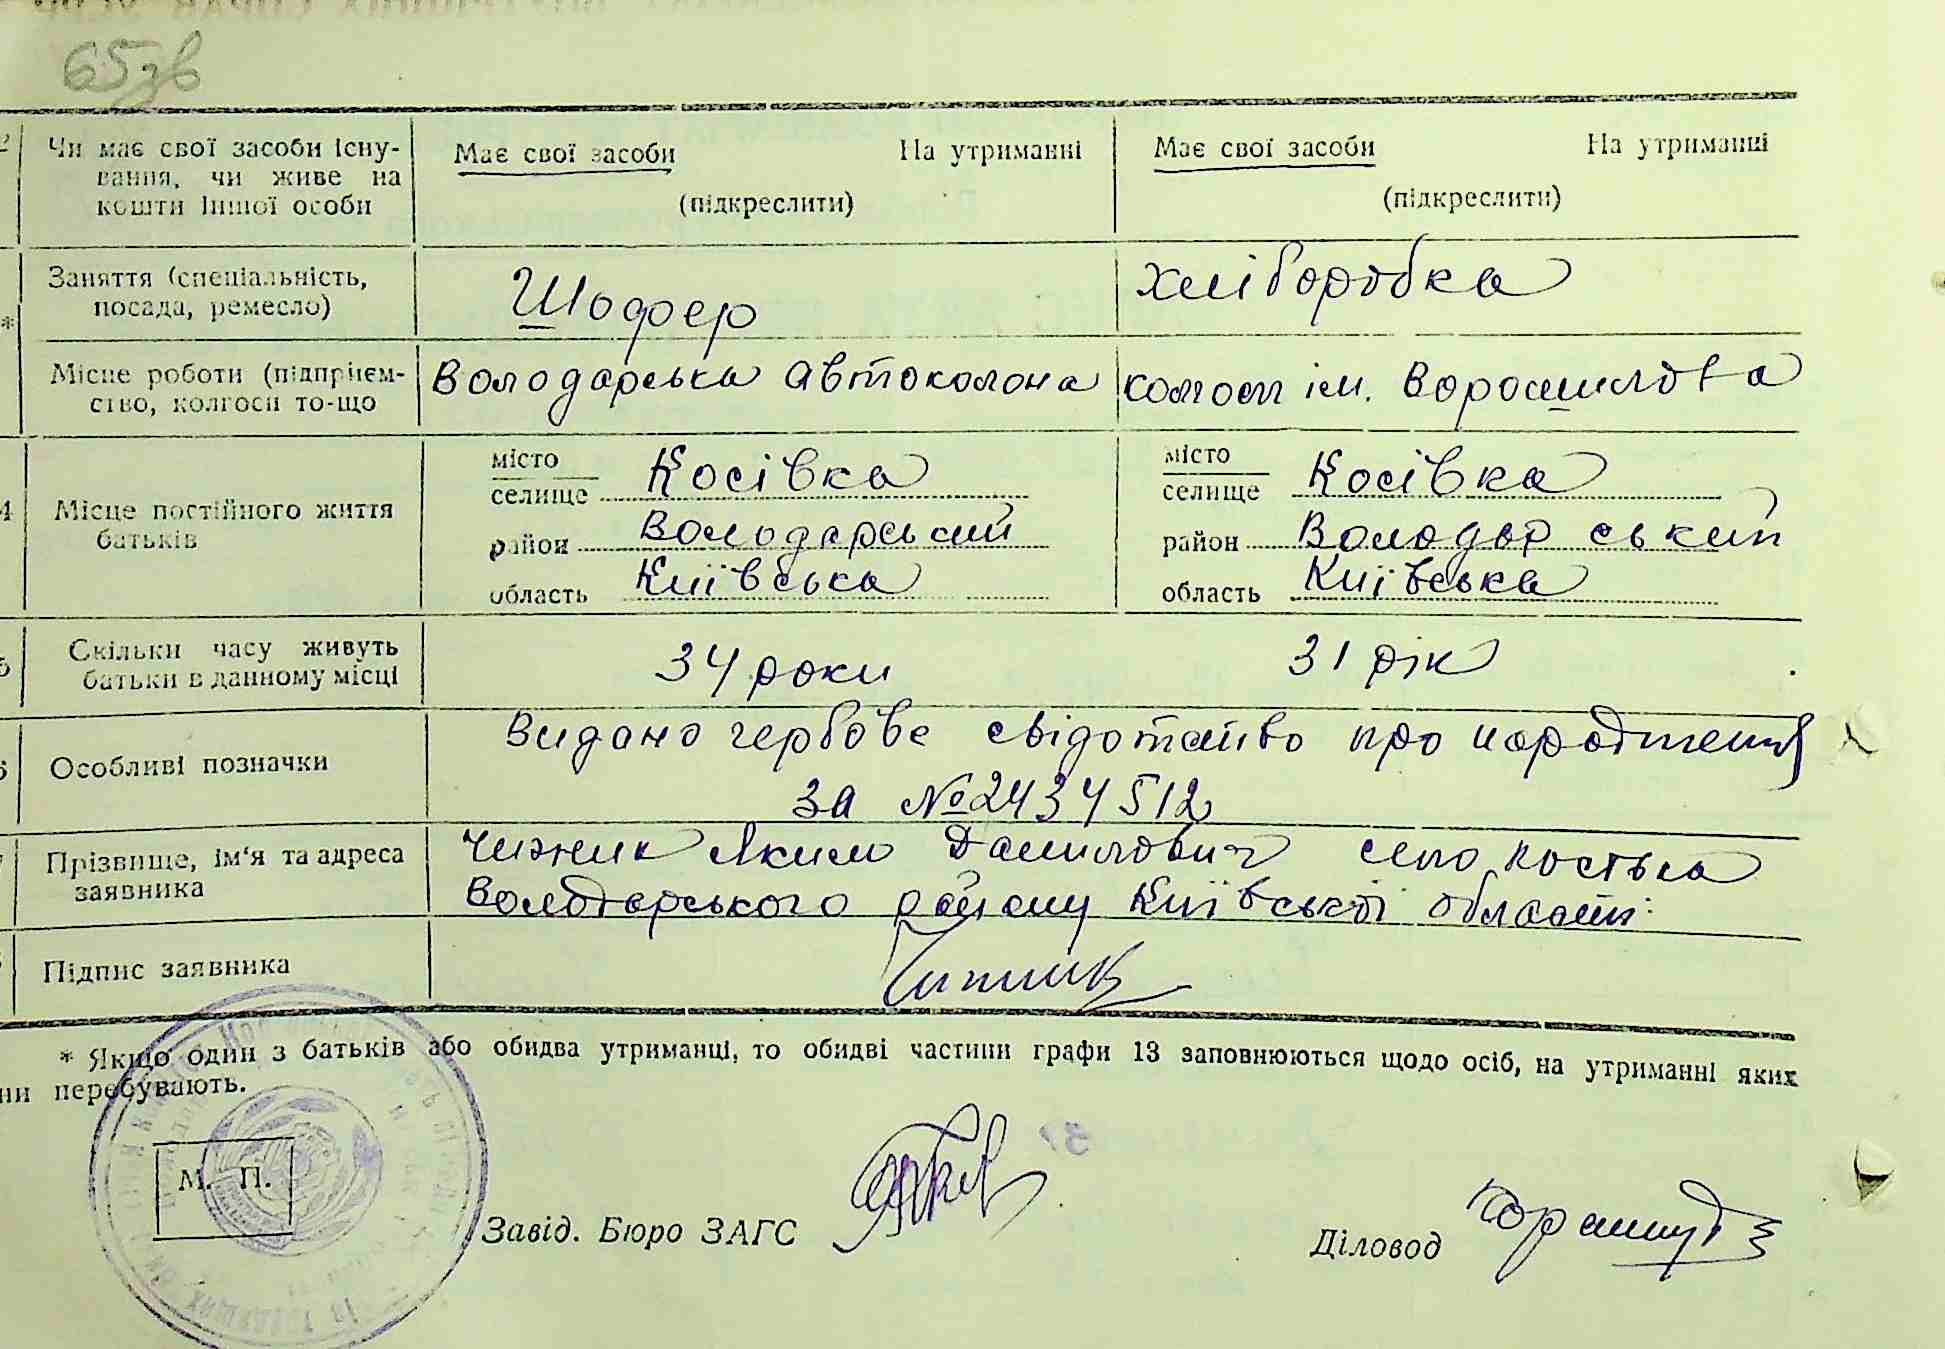 65зв
Чи має свої засоби існу-
вання, чи живе на
кошти іншої особи
Має свої засоби На утриманні
(підкреслити)
Має свої засоби На утриманні
(підкреслити)
Заняття (спеціальність,
посада, ремесло)
Шофер
Хліборобка
*
Місце роботи (підприєм-
ство, колгосп то-що
Володарська Автоколона
колгосп ім. Ворошилова
4
Місце постійного життя
батьків
місто
селище Косівка
район Володарський
область Київська
місто
селище Косівка
район Володарський
область Київська
Скільки часу живуть
батьки в данному місці
34 роки
31 рік
Особливі позначки
Видано гербове свідотство про народження
за №2434512
Прізвище, ім'я та адреса
заявника
Чижник Яким Данилович село
Володарського району Київської області
Підпис заявника
* Якщо один з батьків або обидва утриманці, то обидві частини графи 13 заповнюються щодо осіб, на утриманні яких
ни перебувають.
М. П.
Завід. Бюро ЗАГС
Діловод